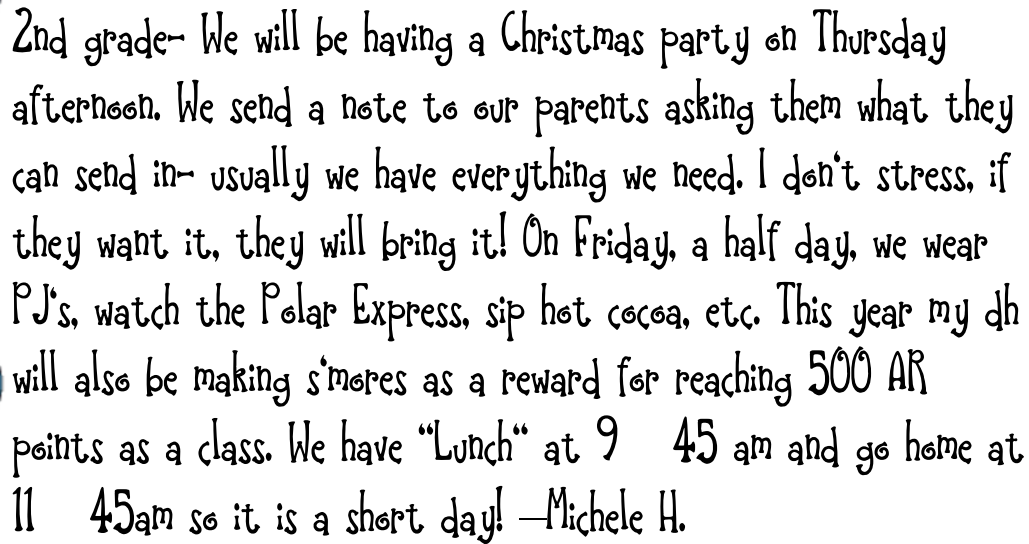 2nd grade- We will be having a Christmas party on Thursday
afternoon. We send a note to our parents asking them what they
can send in- usually we have everything we need. I don't stress, if
they want it, they will bring it! On Friday, a half day, we wear
PJ's, watch the Polar Express, sip hot cocoa, etc. This year my dh
will also be making s'mores as a reward for reaching 500 AR
points as a class. We have "Lunch" at 9 45 am and go home at
11 45am so it is a short day! —Michele H.